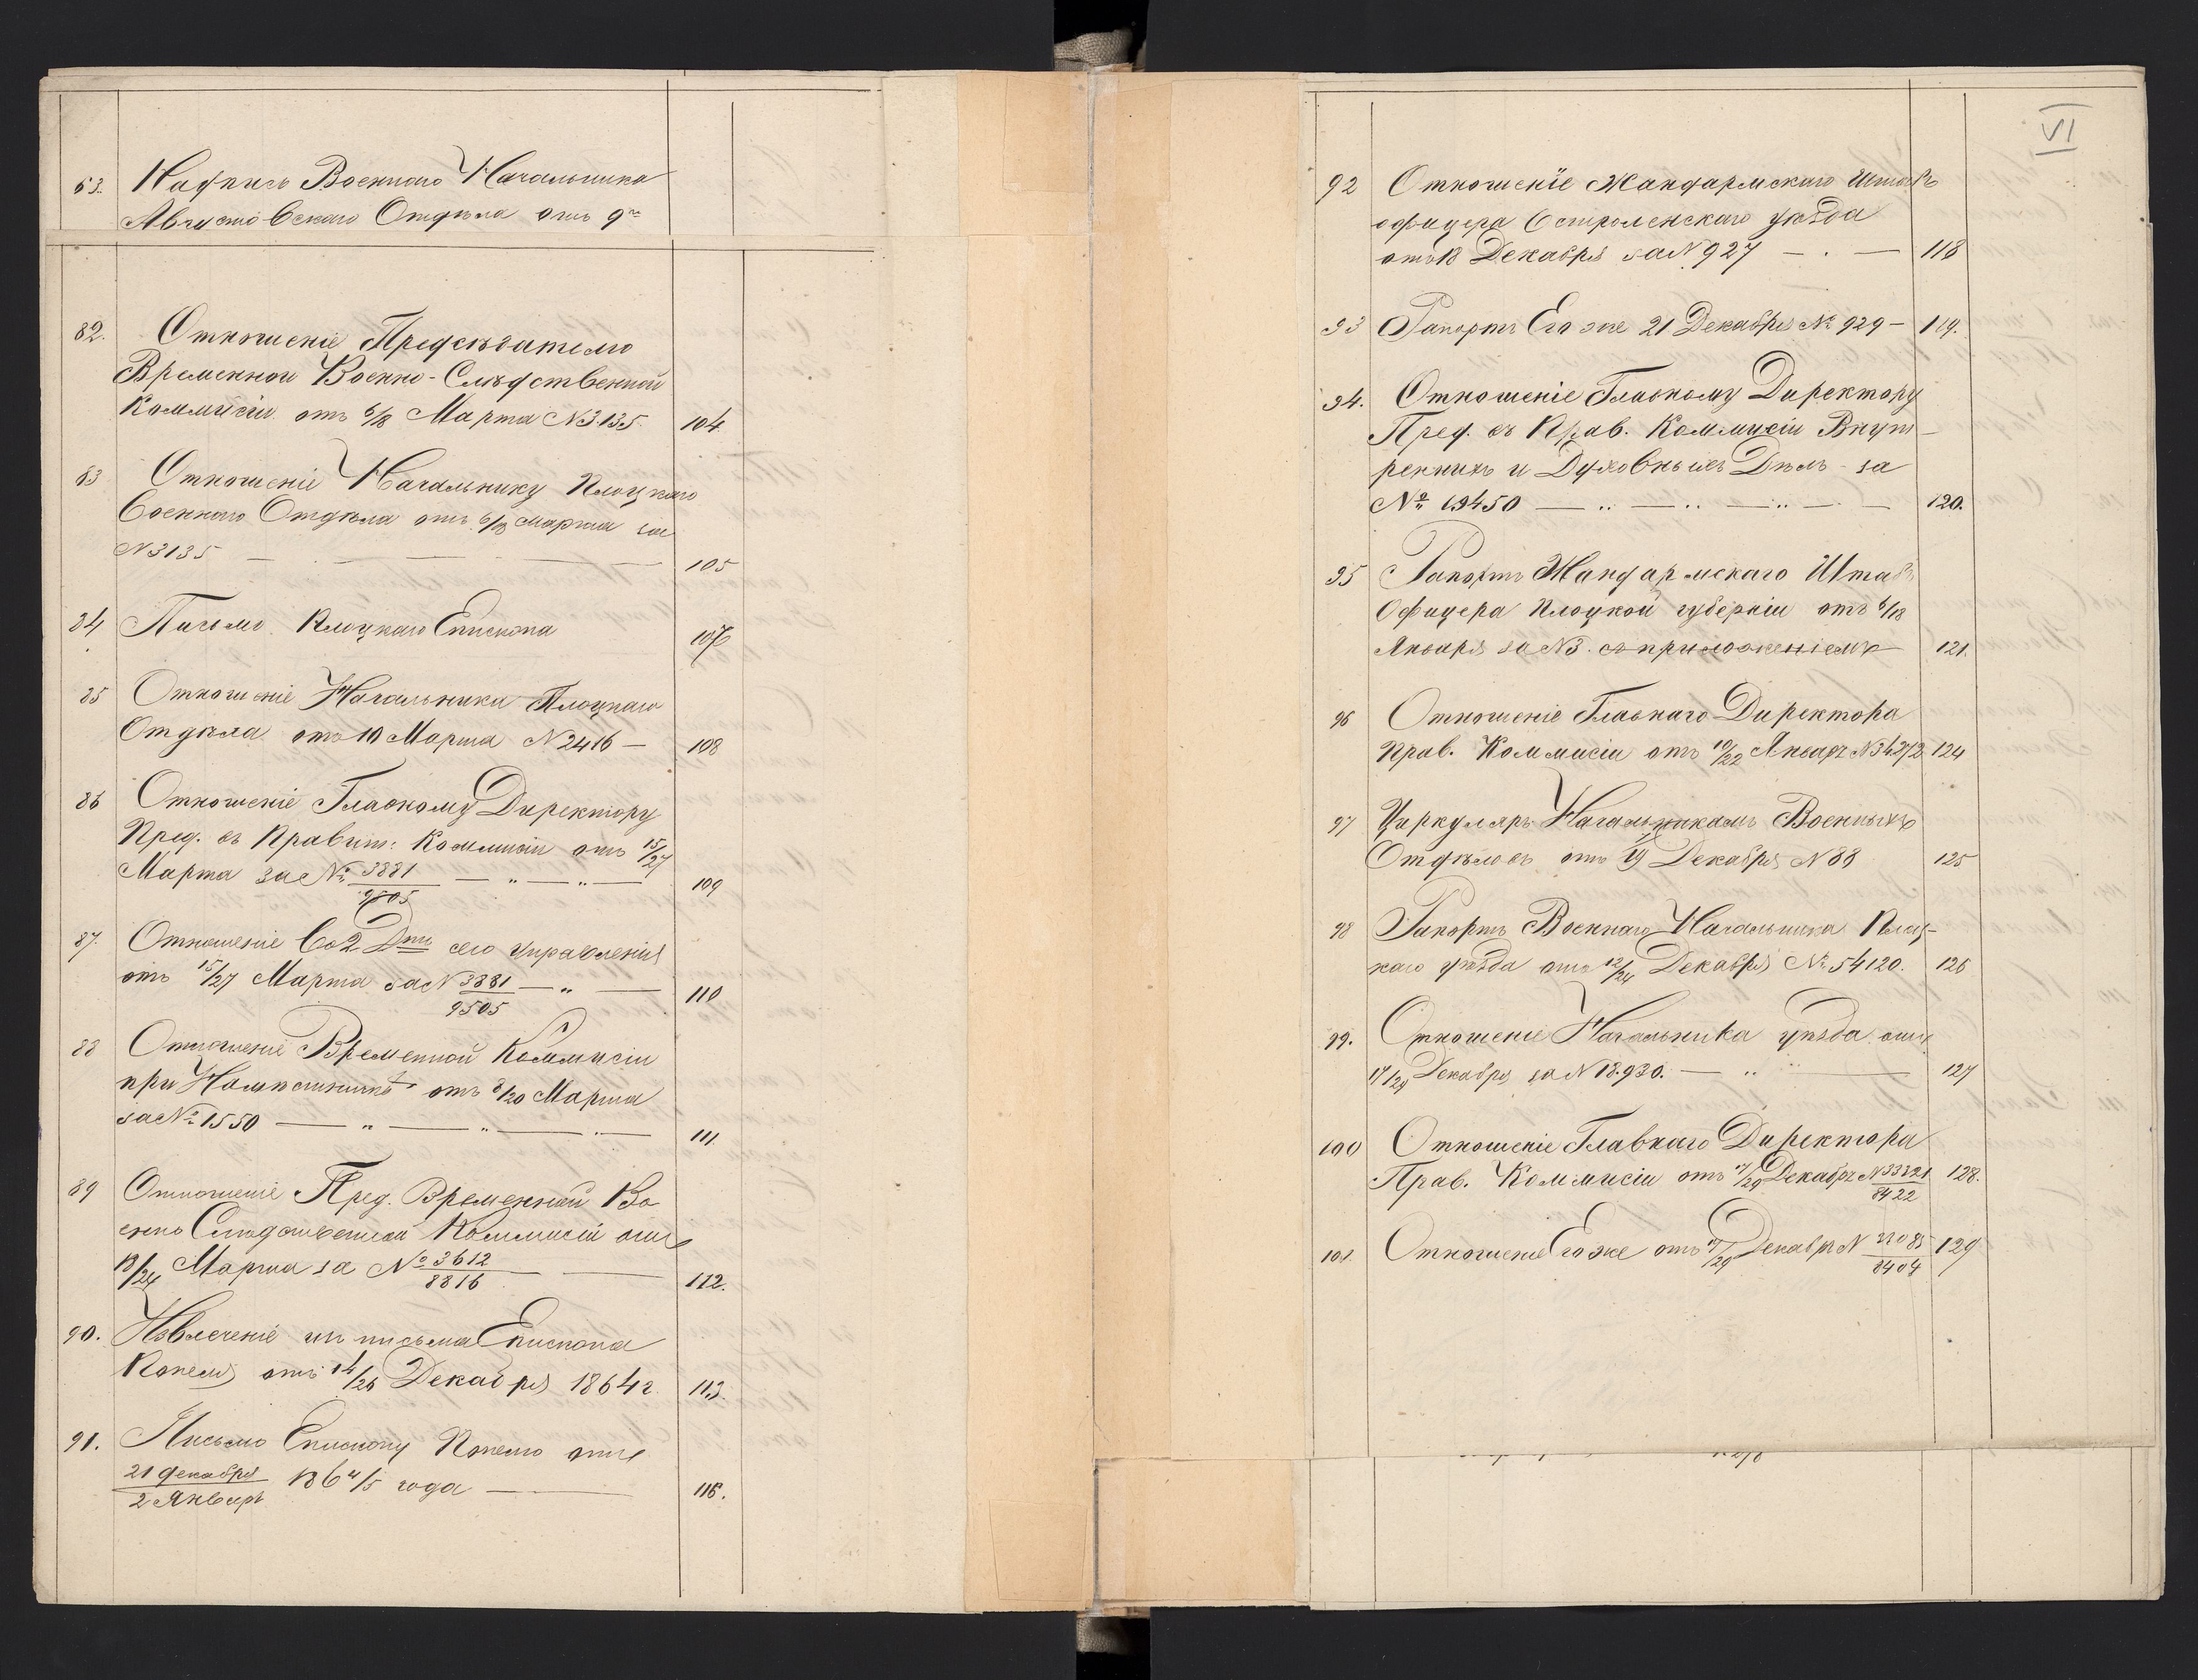 63. Надпись Военнаго Начальника
Августовскаго Отдѣла отъ 9го
82. Отношеніе Предсѣдателю
Временной Военно-Слѣдственной
Коммисіи отъ 6/18 Марта N 3135. 104.
83 Отношеніе Начальнику Плоцкаго
Военнаго Отдѣла отъ 6/18 Марта за
N 3135 — — — 105
84 Письмо Плоцкаго Епископа 107
85 Отношеніе Начальника Плоцкаго
Отдѣла отъ 10 Марта N 2416 — 108
86 Отношеніе Главному Директору
Пред. въ Правит: Коммисіи отъ 15/27
Марта за № 3881/9505 — „ — „ — 109
87. Отношеніе Во 2 Отд. сего Управленія
отъ 15/27 Марта за N 3881/9505 — „ — 110
88 Отношеніе Временной Коммисіи
при Намѣстникѣ отъ 8/20 Марта
за № 1550 — „ — „ — 111.
89 Отношеніе Пред. Временной Во
енно Слѣдственной Коммисіи отъ
12/24 Марта за № 3612/8816 — — 112.
90. Извлеченіе изъ письма Епископа
Попеля отъ 14/26 Декабря 1864 г. 113.
91. Письмо Епископу Попелю отъ
21 декабря/2 Январь 1864/5 года — 116.
VI
92 Отношеніе Жандармскаго Штабъ
офицера Остроленскаго уѣзда
отъ 18 Декабря за N 927 — . — 118
93 Рапортъ Его же 21 Декабря № 929 — 119.
94. Отношеніе Главному Директору
Пред. въ Прав. Коммисіи Внут-
реннихъ и Духовныхъ Дѣлъ за
№ 19450 — „ — „ — „ — 120.
95 Рапортъ Жандармскаго Штабъ
Офицера Плоцкой губерніи отъ 6/18
Января за N 3. съ приложеніемъ 121.
96 Отношеніе Главнаго Директора
Прав. Коммисіи отъ 10/22 Январ N 34272 124
97 Циркуляръ Начальникамъ Военныхъ
Отдѣловъ отъ 19 Декабря N 88 125
98 Рапортъ Военнаго Начальника Плоц-
каго уѣзда отъ 12/24 Декабря № 54120. 126
99. Отношеніе Начальника уѣзда отъ
17/29 Декабря за N 18.930. — „ — 127
100 Отношеніе Главнаго Директора
Прав. Коммисіи отъ 17/29 Декабр N 33821/8422 128.
101. Отношеніе Его же отъ 17/29 Декабр N /8404 129